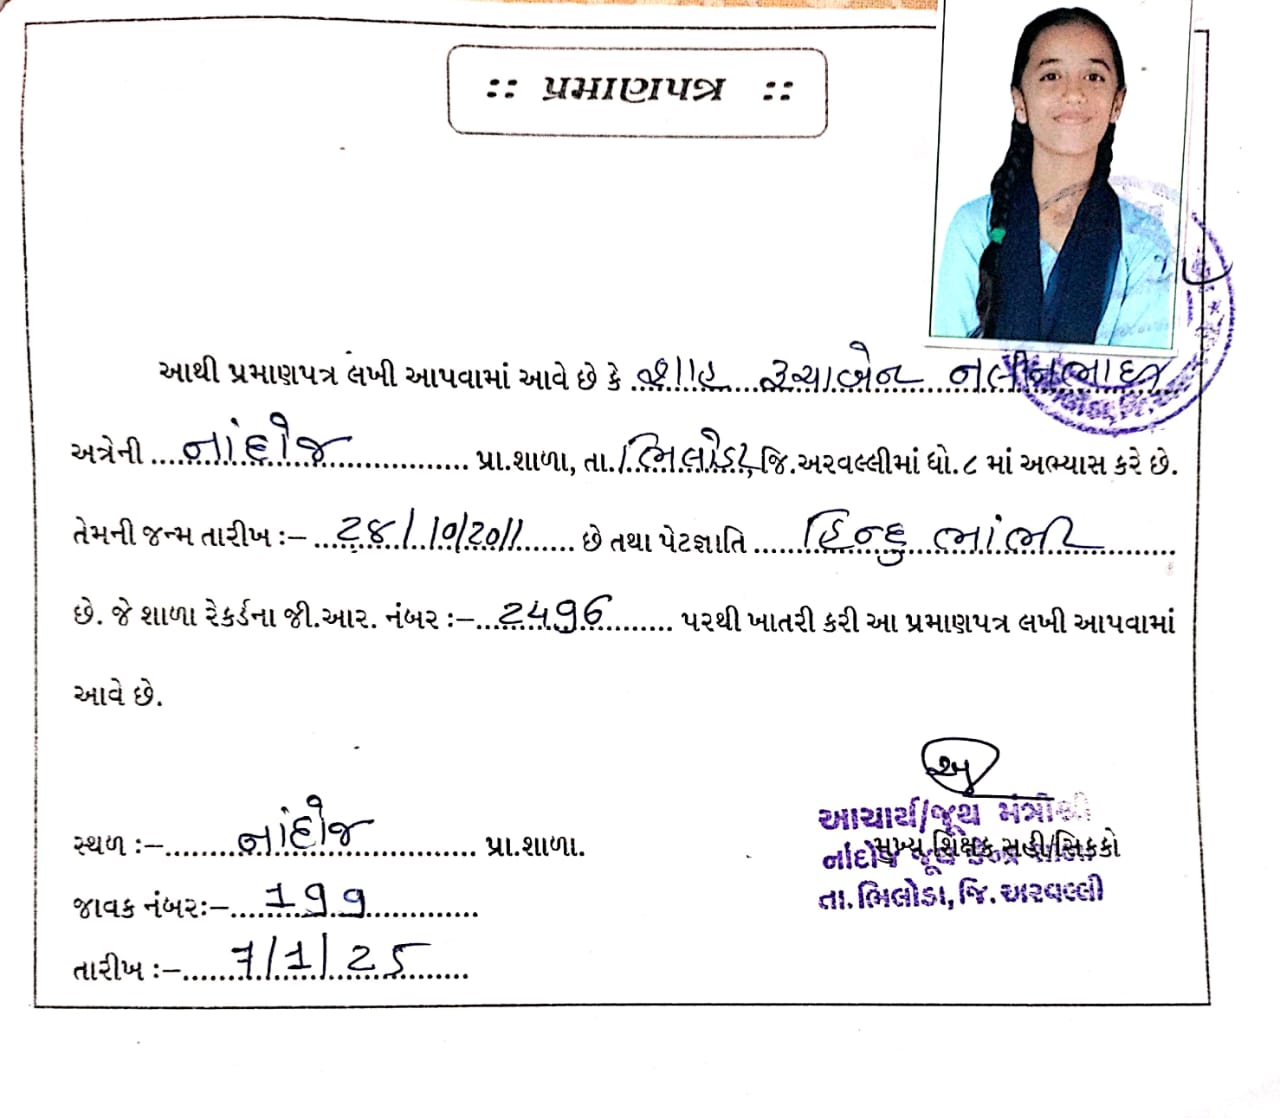 :: પ્રમાણપત્ર ::
આથી પ્રમાણપત્ર લખી આપવામાં આવે છે કે શાહ રૂચાબેન નલીનભાઇ
અત્રેની નાંદોજ પ્રા.શાળા, તા. ભિલોડા, જિ.અરવલ્લીમાં ધો.૮ માં અભ્યાસ કરે છે.
તેમની જન્મ તારીખ :- 28/10/2011 છે તથા પેટજ્ઞાતિ હિન્દુ ભાંભી
છે. જે શાળા રેકર્ડના જી.આર. નંબર :- 2496 પરથી ખાતરી કરી આ પ્રમાણપત્ર લખી આપવામાં
આવે છે.
આચાર્ય/જૂથ મંત્રીશ્રી
સ્થળ :- નાંદોજ પ્રા.શાળા.
મુખ્ય શિક્ષક સહી/સિક્કો
નાંદોજ જૂથ
જાવક નંબર:- 199
તા. ભિલોડા, જિ. અરવલ્લી
તારીખ :- 7/1/25